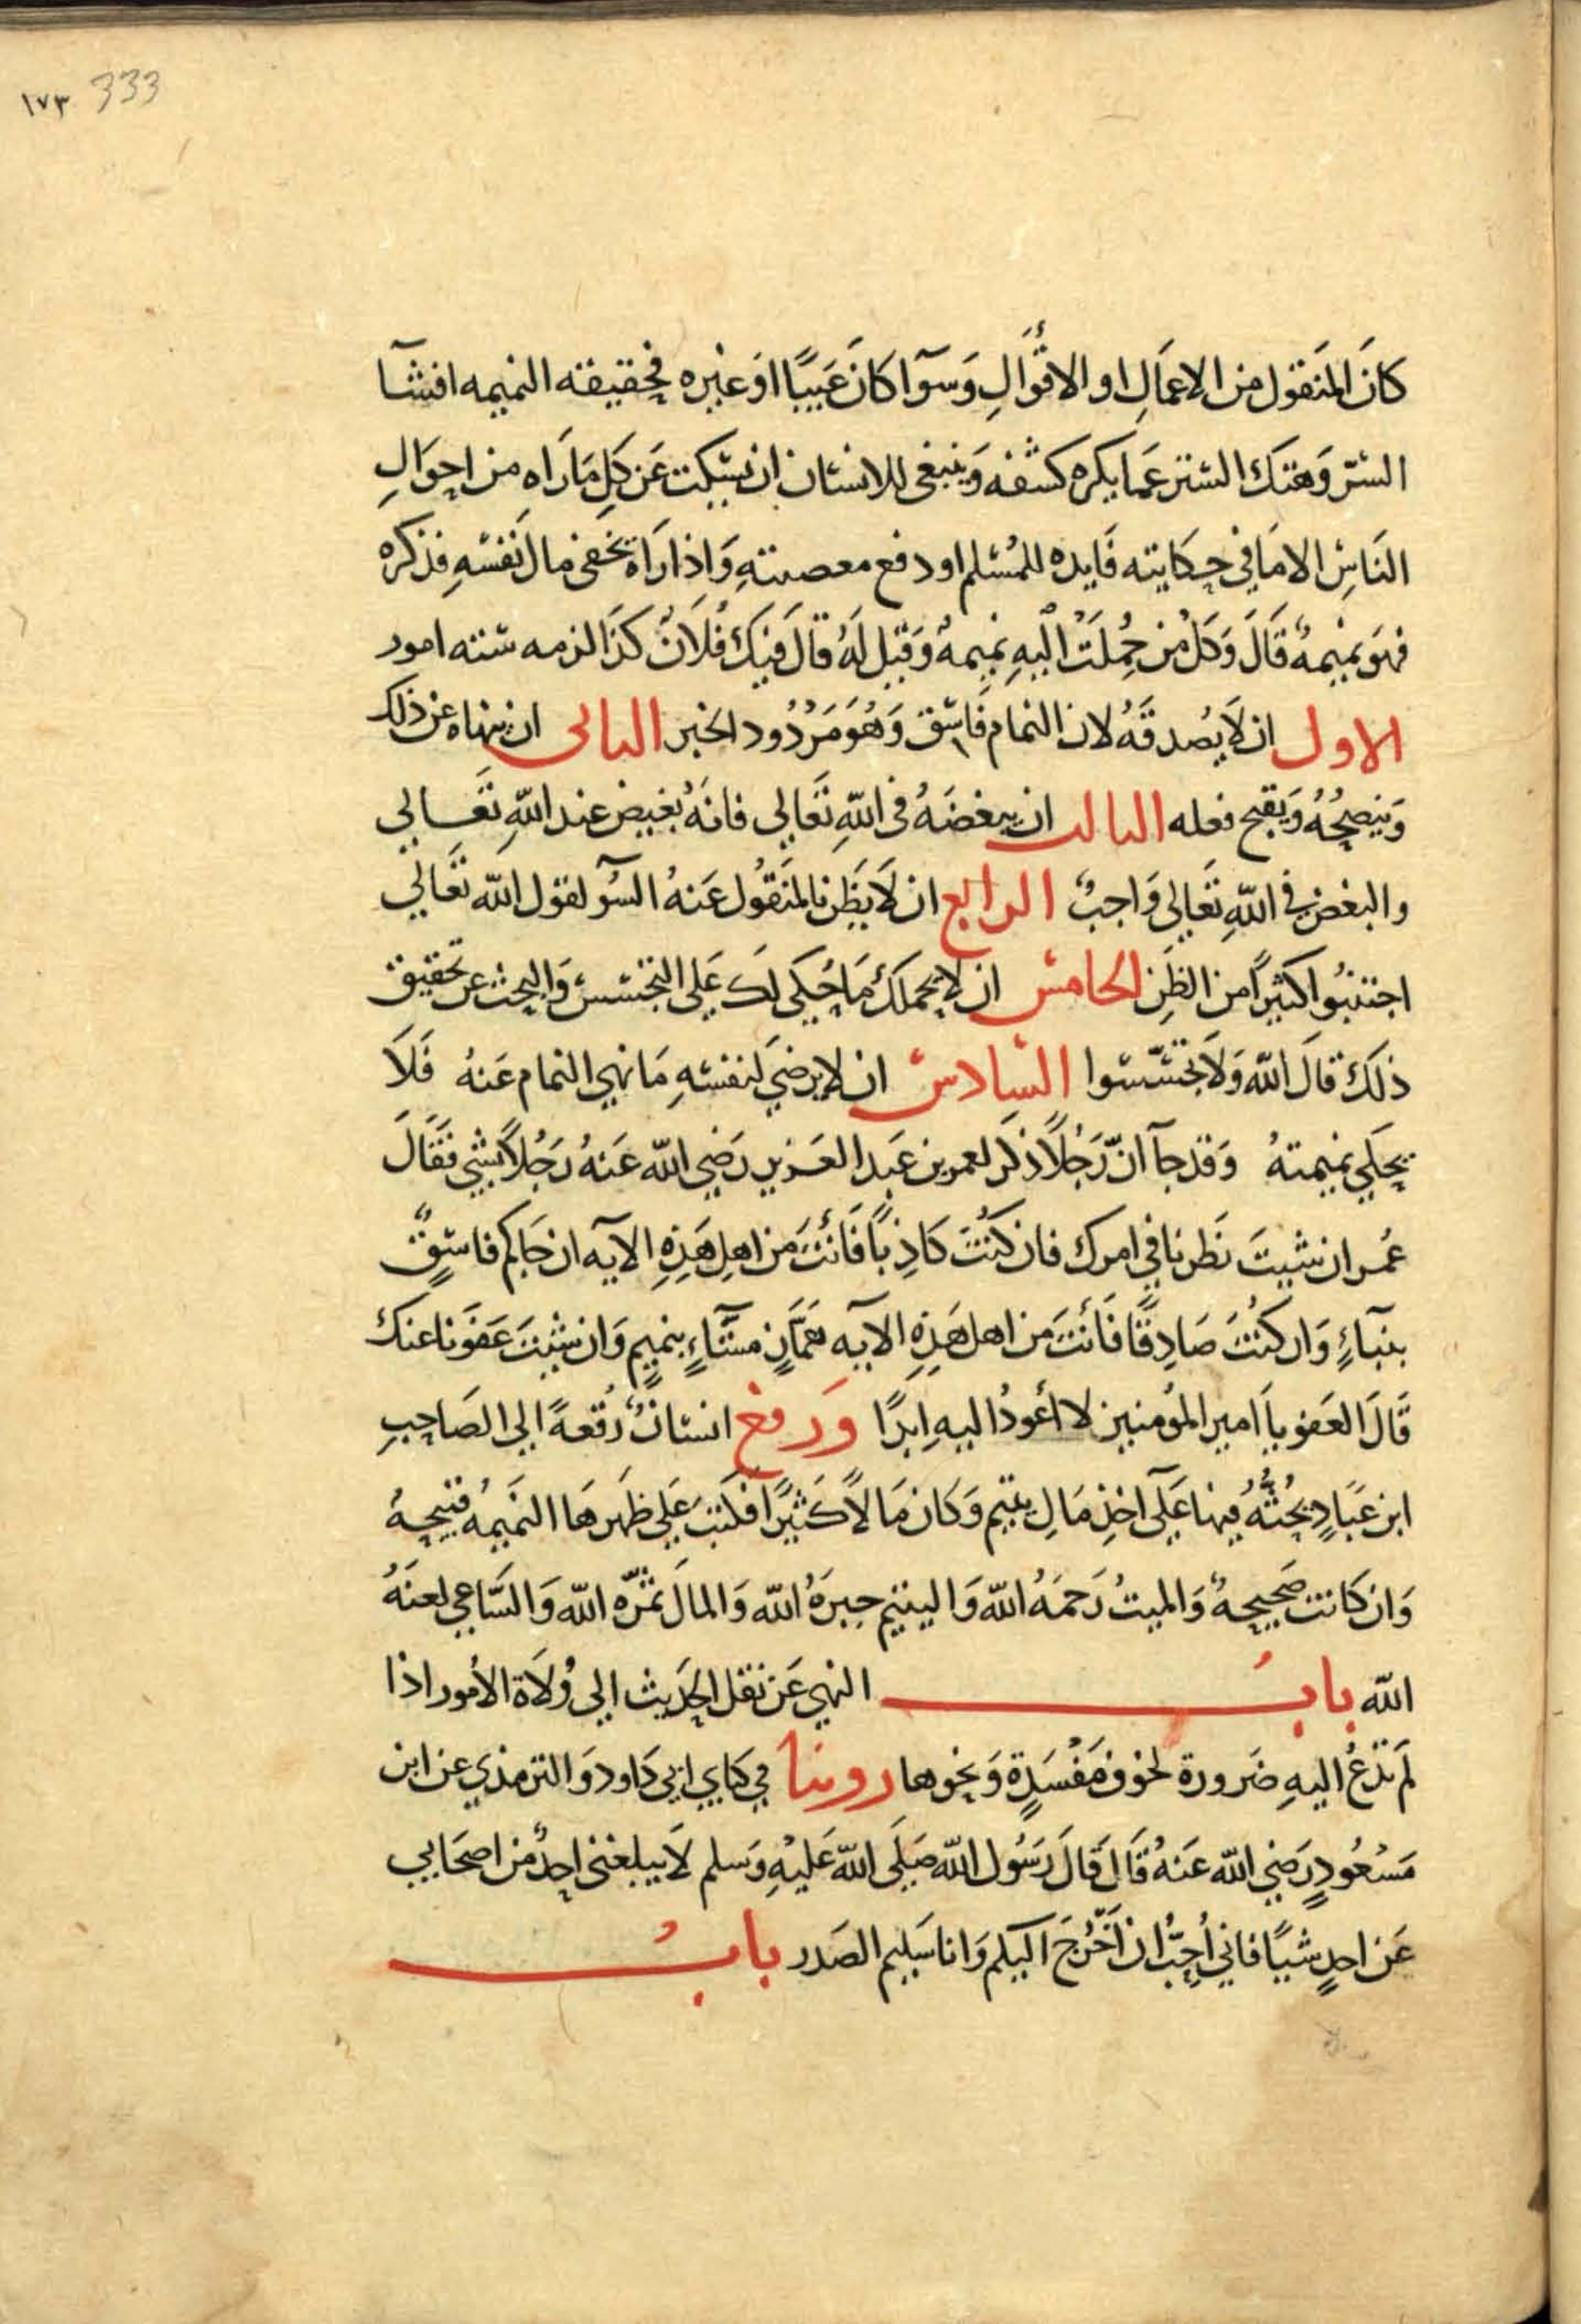 ١٧٣ 333
كانَ المنَقول من الاعمَالِ او الاقوَالِ وَسوآ كانَ عَيبًا اوَ غيره فحقيقته النميمه افشآ
السّرّ وَهتكَ الستر عَما يكره كشفه وَينبغى للانسان ان يسكت عَن كلِ مَا رَاه من احوَالِ
النَاسِ الا مَا في حكَايته فَايده للمُسلم او دفع معصيتهِ وَاذا رَاهُ يخفى مال نَفسهِ فذكره
فهوَ نميمهٌ قَالَ وَكلُ من حُملَتْ اليهِ نميمهٌ وَقيل لَهُ قالَ فيكَ فُلَانٌ كذَا لزمه سته امور
الاول ان لَا يُصدقَهُ لان النمام فَاسق وَهُوَ مَرْدُود الخبر الثانى ان ينهاه عن ذلك
وَينصحُهُ وَيقبح فعله الثالث ان يبغضَهُ فى اللّهِ تَعَالى فانهُ بغيض عند اللّهِ تعَالى
والبغض في اللّهِ تعَالى وَاجبٌ الرابع ان لَا يَظن بالمنَقُول عَنهُ السُوٓ لقول اللّه تعَالى
اجتنبُوا كثيرًا من الظَنِ الخامس ان لا يحملكَ مَا حُكي لكَ عَلى التجسس وَالبحث عن تحقيق
ذلكَ قالَ اللّه وَلَا تجسّسوا السادس ان لا يرضيَ لنفسهِ مَا نهي النمام عَنهُ فَلَا
يحكي نميمتهُ وَقد جآ انّ رَجُلًا ذكَر لعمر بن عَبد العَزيز رَضي اللّه عَنهُ رَجُلًا بشي فقَالَ
عُمر ان شيتَ نَظرنا في امرك فان كُنتَ كَاذِبًا فَانتَ مَن اهلِ هَذِهِ الايه ان جَاكم فاسقٌ
بنباءٍ وَان كنتَ صَادِقًا فَانتَ من اهل هَذِهِ الايه همَّازٍ مشّاءٍ بنميمٍ وَان شيتَ عَفوَنا عنك
قَالَ العَفو يا امير المُومنين لا اعُودُ اليهِ ابدًا وَرفع انسانٌ رُقعهً الى الصَاحبِ
ابن عَبادٍ يحُثُّهُ فيها عَلى اخذِ مَالِ يتيم وَكان مَالًا كَثيرًا فكتبَ عَلى ظَهرهَا النَميمهُ قبيحهٌ
وَان كَانت صَحيحهً وَالميتُ رَحمَهُ اللّه وَاليتيم جبرَهُ اللّه وَالمالَ ثمّرَه اللّه وَالسّاعي لعنَهُ
اللّه بابُ النهي عَن نقل الحَديث الى وُلَاة الأمور اذا
لَم تدعُ اليهِ ضَرورة لخوف مَفْسَدةٍ وَنحوها روينا في كتابي ابى دَاود وَالترمذي عن ابن
مَسْعُودٍ رَضي اللّه عَنهُ قَالَ قَالَ رَسُول اللّه صَلى اللّهُ عَليهِ وَسلم لَا يبلغنى احدٌ من اصحَابى
عَن احدٍ شيًا فاني أُحبُّ ان أخرُجَ اليكم وَانا سَليم الصَدر بابُ